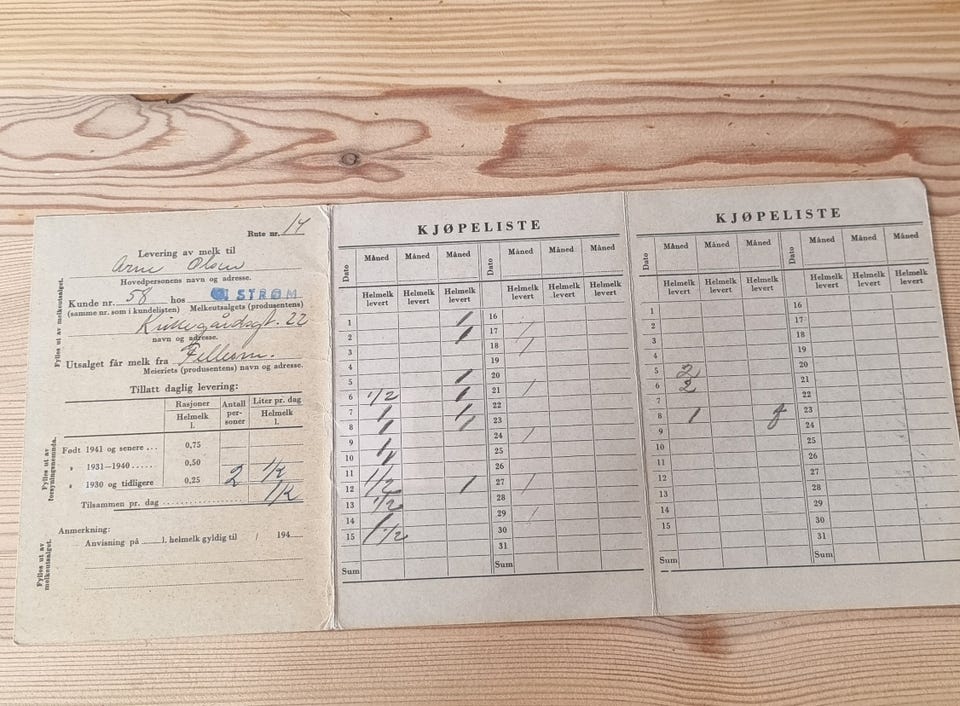 Rute nr. 14
Levering av melk til
Arne Olsen
Hovedpersonens navn og adresse.
Kunde nr. 58 hos STRØM
(samme nr. som i kundelisten) Melkeutsalgets (produsentens)
Kirkegårdsgt. 22
navn og adresse.
Utsalget får melk fra Fellesm.
Meieriets (produsentens) navn og adresse.
Fylles ut av melkeutsalget.
Tillatt daglig levering:
Rasjoner Helmelk l. Antall personer Liter pr. dag Helmelk l.
Født 1941 og senere ... 0,75
" 1931—1940 ...... 0,50
" 1930 og tidligere 0,25 2 1/2
Tilsammen pr. dag ............ 1/2
Fylles ut av forsyningsnemnda.
Anmerkning:
Anvisning på l. helmelk gyldig til / 194
Fylles ut av melkeutsalget.
KJØPELISTE
Dato Måned Måned Måned Dato Måned Måned Måned
Helmelk levert Helmelk levert Helmelk levert Helmelk levert Helmelk levert Helmelk levert
1 1 16
2 1 17 /
3 18 /
4 19
5 1 20
6 1/2 1 21 /
7 1 1 22
8 1 1 23
9 24 /
10 1 25
11 26
12 1/2 1 27 /
13 1/2 28
14 29 /
15 1 1/2 30
31
Sum Sum
KJØPELISTE
Dato Måned Måned Måned Dato Måned Måned Måned
Helmelk levert Helmelk levert Helmelk levert Helmelk levert Helmelk levert Helmelk levert
1 16
2 17
3 18
4 19
5 2 20
6 2 21
7 22
8 1 23
9 24
10 25
11 26
12 27
13 28
14 29
15 30
31
Sum Sum